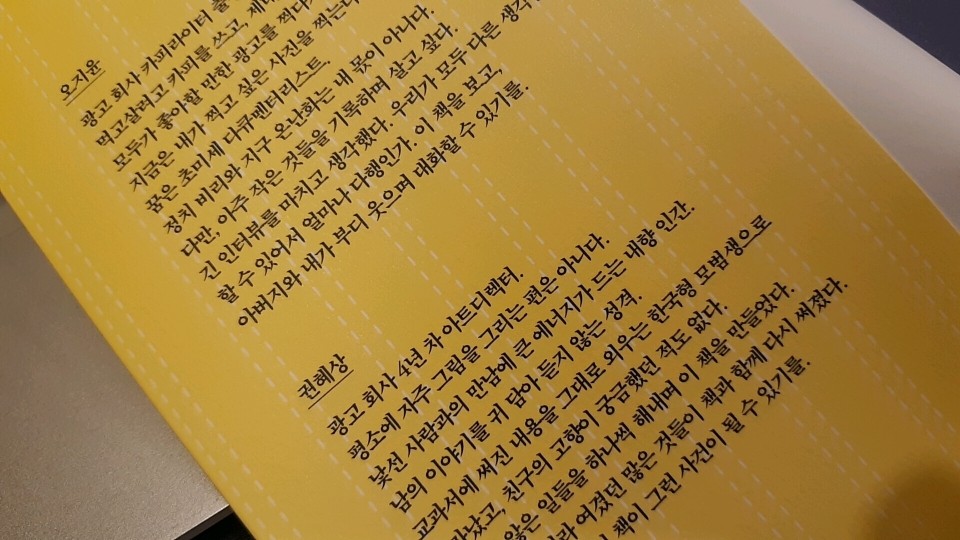 오지윤
광고 회사 카피라이터
먹고살려고 카피를 쓰고,
모두가 좋아할 만한 광고를 찍다
지금은 내가 찍고 싶은 사진을 찍는다
꿈은 초미세 다큐멘터리스트.
정치 비리와 지구 온난화는 내 몫이 아니다.
다만, 아주 작은 것들을 기록하며 살고 싶다.
긴 인터뷰를 마치고 생각했다. 우리가 모두 다른 생각
할 수 있어서 얼마나 다행인가. 이 책을 보고,
아버지와 내가 부디 웃으며 대화할 수 있기를.
권혜상
광고 회사 4년 차 아트디렉터.
평소에 자주 그림을 그리는 편은 아니다.
낯선 사람과의 만남에 큰 에너지가 드는 내향 인간.
남의 이야기를 귀 담아 듣지 않는 성격.
교과서에 써진 내용을 그대로 외우는 한국형 모범생으로
자랐고, 친구의 고향이 궁금했던 적도 없다.
않은 일들을 하나씩 해내며 이 책을 만들었다.
라 여겼던 많은 것들이 책과 함께 다시 써졌다.
책이 그런 사건이 될 수 있기를.